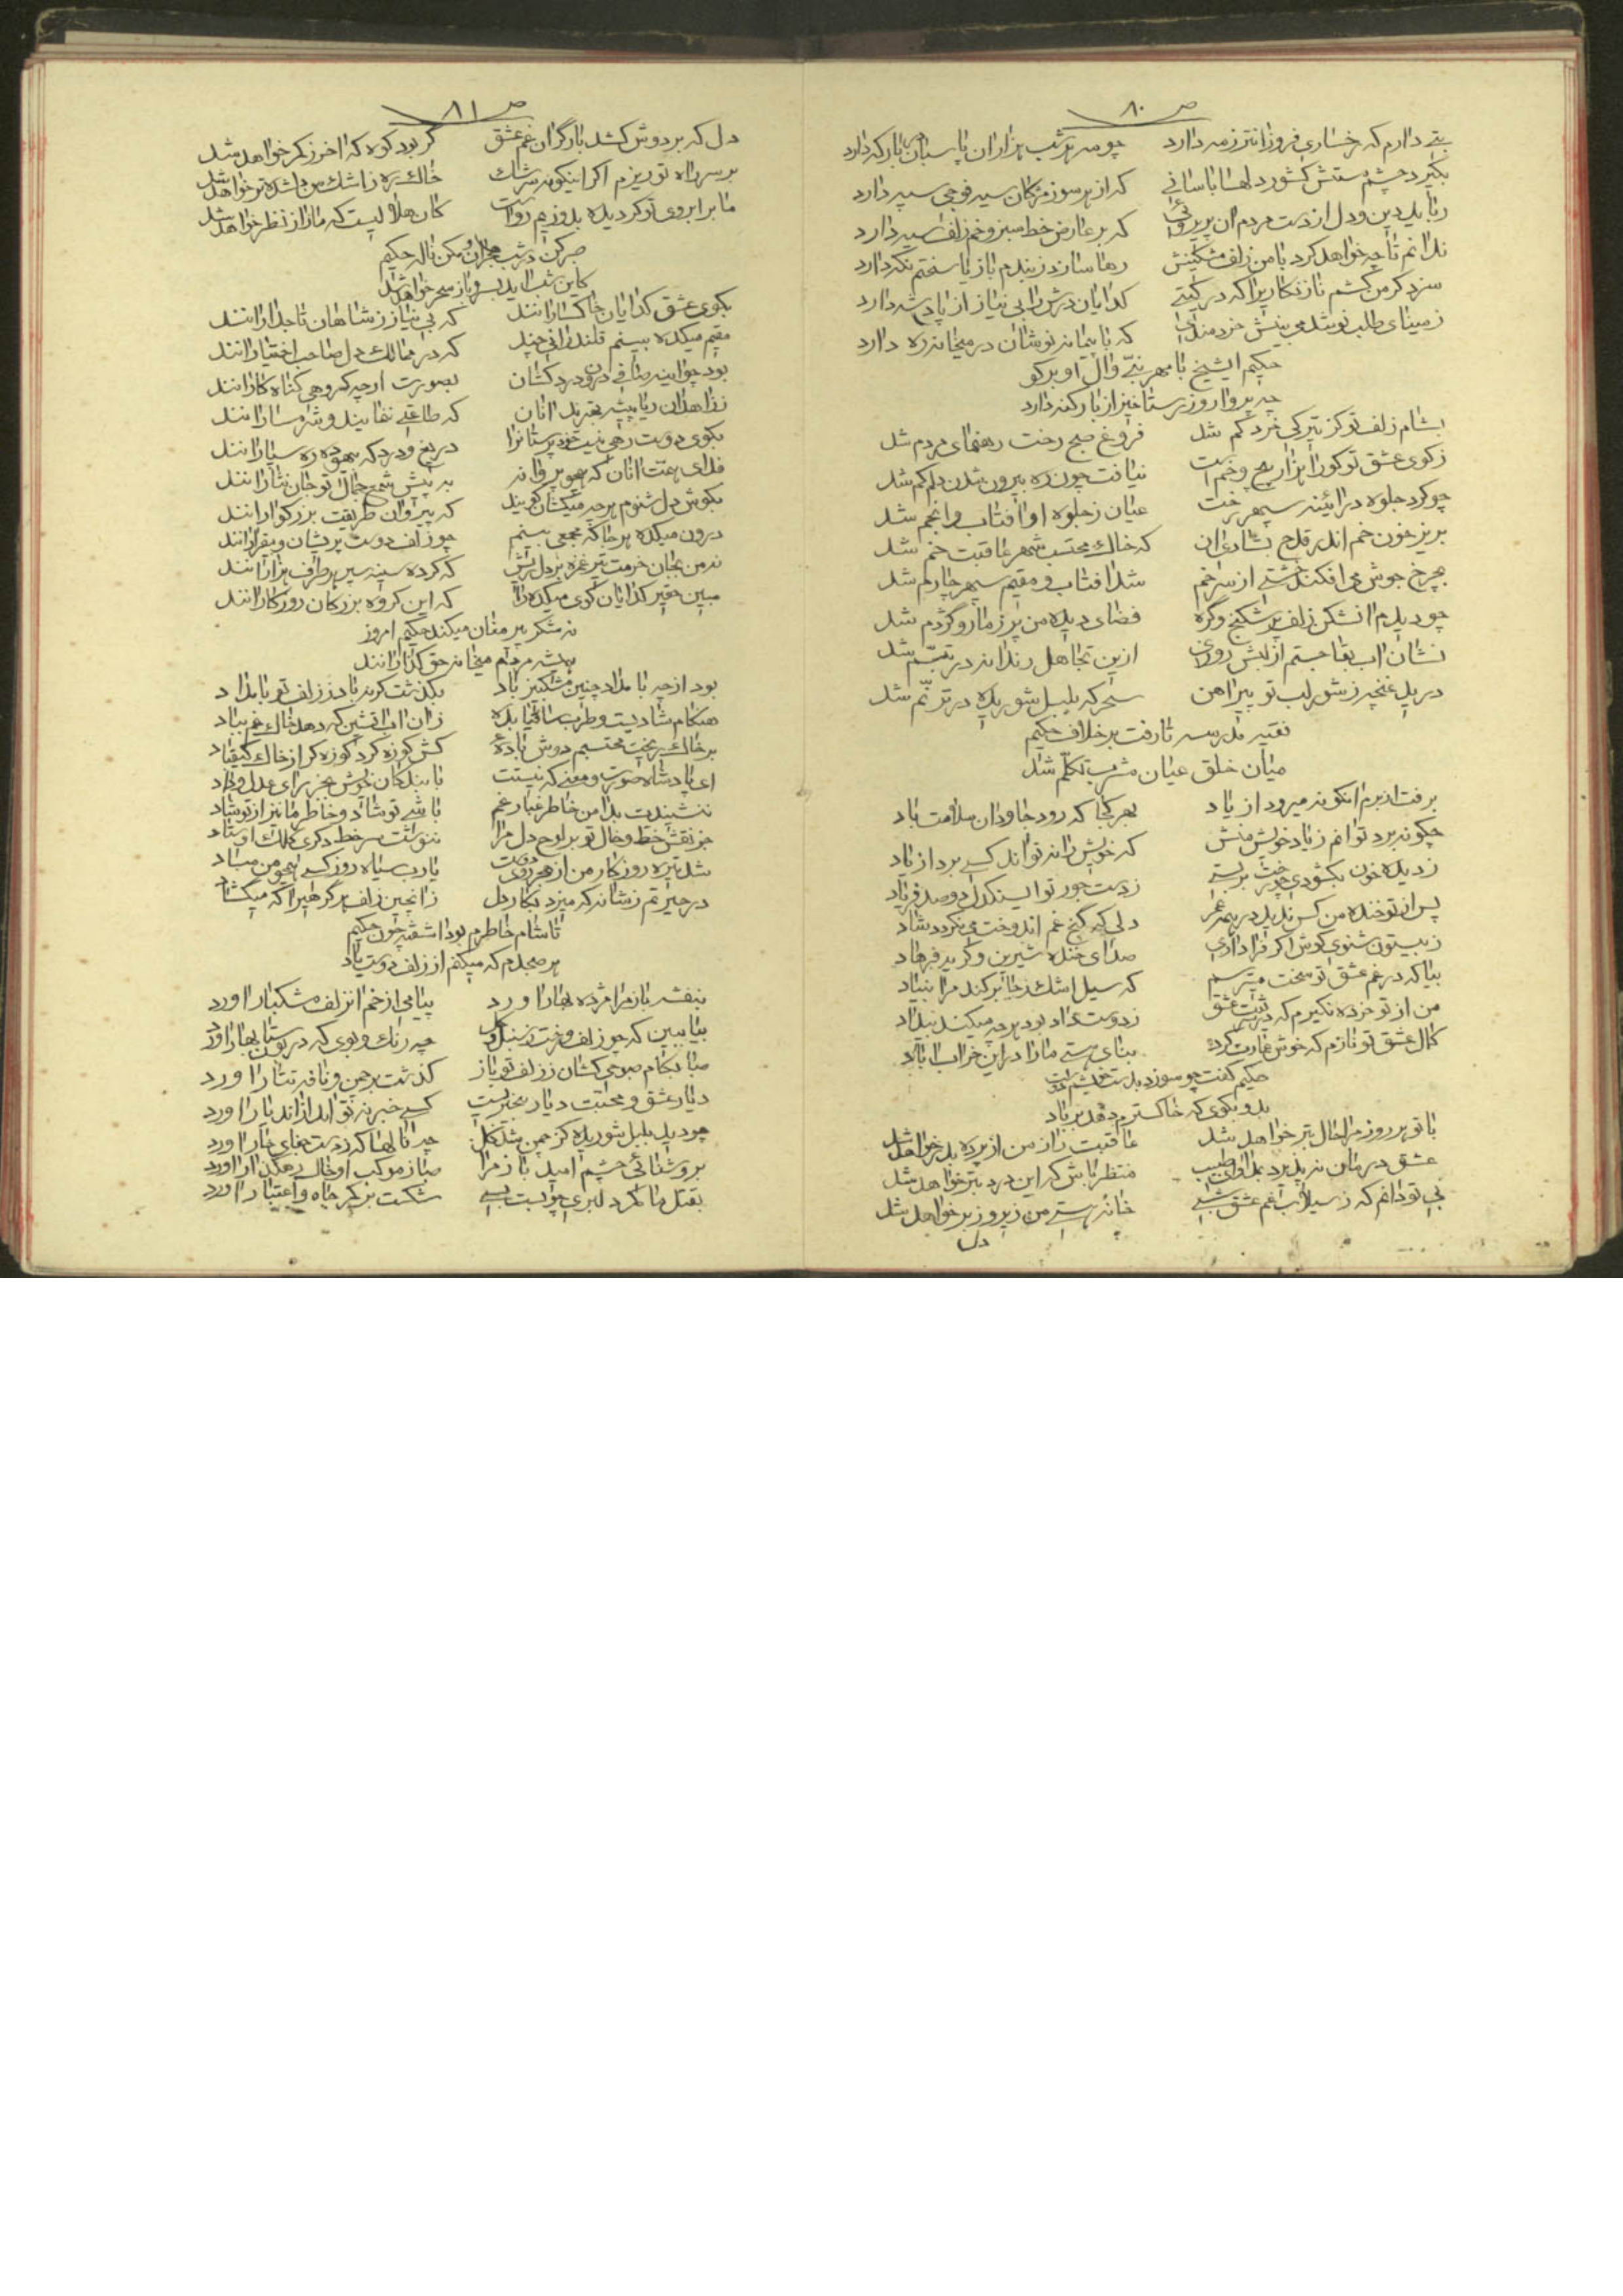 ص ٨٠
بتی دارم که رخساری فروزانتر ز مه دارد چو مه هر شب هزاران پاسبان بارکه دارد
بگیرد چشم مستش کشور دلها باسانی که از هر سو ز مژکان سیه فوجی سپه دارد
رباید دین و دل از دست مردم آن پریروئی که بر عارض خط سبز و خم زلف سیه دارد
ندانم تا چه خواهد کرد با من زلف مشکینش رها سازد ز بندم باز یا سختم نکه دارد
سزد کر من کشم ناز نکاریرا که در کیتی کدایان درش را بی نیاز از پادشه دارد
ز مینای طلب نوشد می بینش خردمندی که با پیمانه نوشان در میخانه ره دارد
حکیم ایشیخ با مهر نبی و آل او برکو
چه پروا روز رستاخیز از بار کنه دارد
بشام زلف تو کز تیرکی خرد کم شد فروغ صبح رخت رهنمای مردم شد
ز کوی عشق تو کورا هزار پیچ و خم است نیافت چون ره بیرون شدن دلم کم شد
چو کرد جلوه در ائینه سپهر رخت عیان ز جلوه او افتاب و انجم شد
بریز خون خم اندر قدح بشادی ان که خاک محتسب شهر عاقبت خم شد
بچرخ جوش می افکند خشتی از سر خم شد افتاب و مقیم سپهر چارم شد
چو دیدم ان شکن زلف پر شکنج و کره فضای دیده من پر ز مار و کژدم شد
نشان اب بقا جستم از لبش روزی ازین تجاهل رندانه در تبسم شد
درید غنچه ز شور لب تو پیراهن سحر که بلبل شوریده در ترنم شد
فقیه مدرسه تا رفت بر خلاف حکیم
میان خلق عیان مشرب تکلم شد
برفت از برم انکو نمیرود از یاد بهر کجا که رود جاودان سلامت باد
چکونه برد توانم ز یاد خویش منش که خویش را نتواند کسی برد از یاد
ز دیده خون بکشودی چو رخت بر بستی ز دست جور تو ای سنکدل دو صد فریاد
پس از تو خنده من کس ندید در همه عمر دلی که کنج غم اندوخت می نکردد شاد
ز بیستون شنوی کوش اکر فرا داری صدای خنده شیرین و کریه فرهاد
بیا که در غم عشق تو سخت میترسم که سیل اشک ز جا برکند مرا بنیاد
من از تو خرده نکیرم که در شریعت عشق ز دوست داد بود هر چه میکند بیداد
کمال عشق تو نازم که خوش عمارت کرد بنای هستی ما را در این خراب اباد
حکیم کفت چو سوزد بدست خویشم دوست
بدو بکوی که خاکسترم دهد بر باد
با تو هر روز مرا حال بتر خواهد شد عاقبت راز من از پرده بدر خواهد شد
عشق درمان نپذیرد بمداوای طبیب منتظر باش که این درد بتر خواهد شد
بی تو دانم که ز سیلاب غم عشق شبی خانه هستی من زیر و زبر خواهد شد
دل
ص ٨١
دل که بر دوش کشد بار کران غم عشق کر بود کوه که اخر ز کمر خواهد شد
بر سر راه تو ریزم اکر اینکونه سرشک خاک ره ز اشک من دلشده تر خواهد شد
ما بر ابروی تو کر دیده بدوزیم رواست کان هلالیست که ما را ز نظر خواهد شد
صبر کن در شب هجران و مکن ناله حکیم
کاین شب اید بسر و باز سحر خواهد شد
بکوی عشق کدایان خاکسارانند که بی نیاز ز شاهان تاجدارانند
مقیم میکده بینم قلندرانی چند که در ممالک دل صاحب اختیارانند
بود چو اینه صافی درون درد کشان بصورت ارچه کروهی کناه کارانند
ز زاهدان ریا پیشه بهترند انان که طاعتی ننمایند و شرمسارانند
بکوی دوست رهی نیست خود پرستانرا دریغ و درد که بیهوده ره سپارانند
فدای همت انان که همچو پروانه به پیش شمع جمال تو جان نثارانند
بکوش دل شنوم هر چه میکشان کویند که پیروان طریقت بزرکوارانند
درون میکده هر جا که مجمعی بینم چو زلف دوست پریشان و بیقرارانند
نه من بجان خرمت تیر غمزه بر دل ریش که کرده سینه سپر هر طرف هزارانند
مبین حقیر کدایان کوی میکده را که این کروه بزرکان روزکارانند
نه شکر پیر مغان میکند حکیم امروز
همیشه مردم میخانه حق کذارانند
بود از چه بامداد چنین مشکبیز باد بکذشت کر نه باد ز زلف تو بامداد
هنکام شادیست و طرب ساقیا بده زان اب اتشین که دهد خاک غم بباد
بر خاک ریخت محتسبم دوش باده کش کوزه کرد کوزه کر از خاک کیقباد
ای پادشاه صورت و معنی که نیستت با بندکان خویش بجز رای عدل و داد
ننشیندت بدامن خاطر غبار غم تا شی تو شاد و خاطر ما نیز از تو شاد
جز نقش خط و خال تو بر لوح دل مرا ننوشت سر خط دکری کلک اوستاد
شد تیره روزکار من از هجر روی دوست یا رب سیاه روز کسی همچو من مباد
در حیرتم ز شانه که میزد بکار دل زانچین زلف هر کرهیرا که میکشاد
تا شام خاطرم بود اشفته چون حکیم
هر صبحدم که میکنم از زلف دوست یاد
بنفشه باز مرا مژده بهار اورد پیامی از خم انزلف مشکبار اورد
بیا ببین که چو زلف و رخت ز سنبل و کل چه رنک و بوی که در بوستان بهار اورد
صبا بکام صبوحی کشان ز زلف تو باز کذشت بر چمن و نافه تتار اورد
دیار عشق و محبت دیار بیخبریست کسی خبر نه تواند از اندیار اورد
چو دید بلبل شوریده کز چمن شد کل چه نالها که ز دست جفای خار اورد
بروشنائی چشم امید باز مرا صبا ز موکب او خاک رهکذار اورد
بقتل ما کمر دلبری چو بست بسی شکست بر کمر جاه و اعتبار اورد